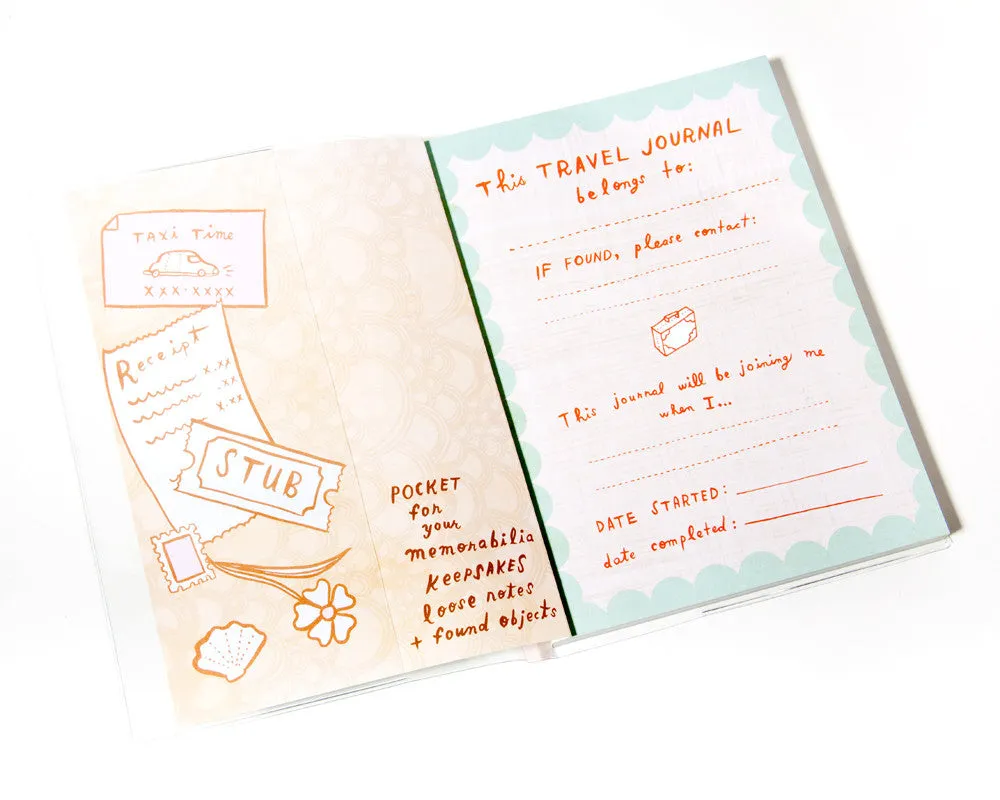 TAXi Time
xxx·xxxx
Receipt
x.xx
.xx
x.xx
STUB
POCKET
for
your
memorabilia
KEEPSAKES
loose notes
+ found objects
This TRAVEL JOURNAL
belongs to:
IF FOUND, please contact:
This journal will be joining me
when I...
DATE STARTED:
date completed: